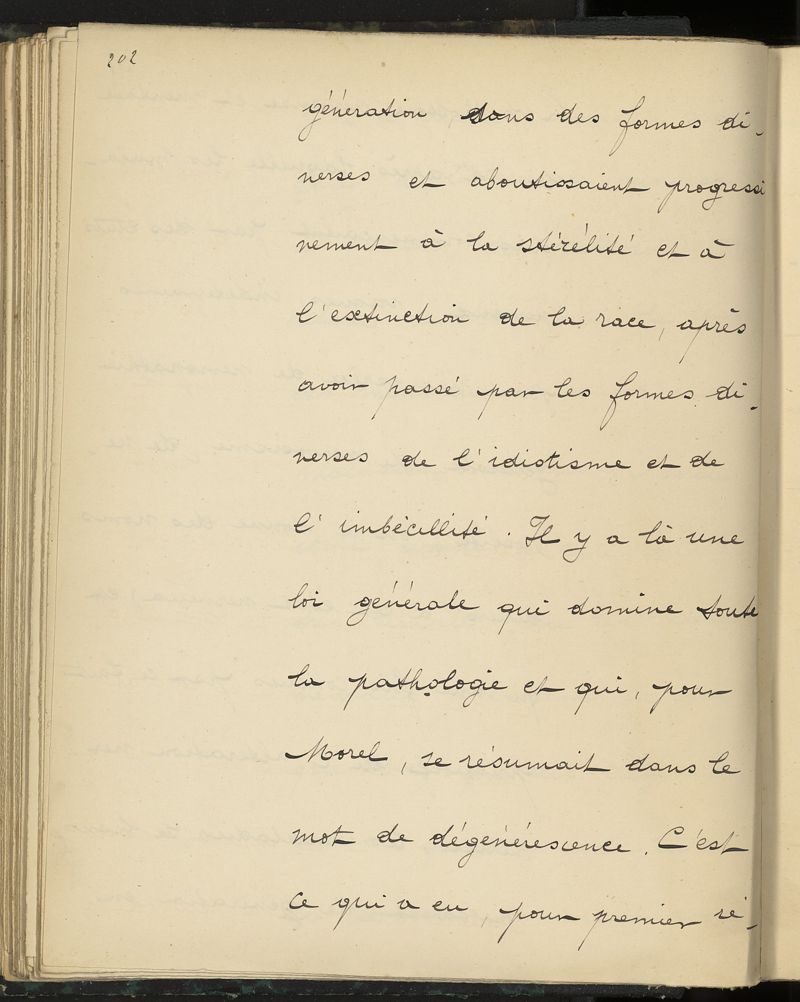 202
génération dans des formes di-
verses et aboutissaient progressi
vement à la stérélité et à
l'extinction de la race, après
avoir passé par les formes di-
verses de l'idiotisme et de
l'imbécillité. Il y a là une
loi générale qui domine toute
la pathologie et qui, pour
Morel, se résumait dans le
mot de dégénérescence. C'est
ce qui a eu, pour premier ré-